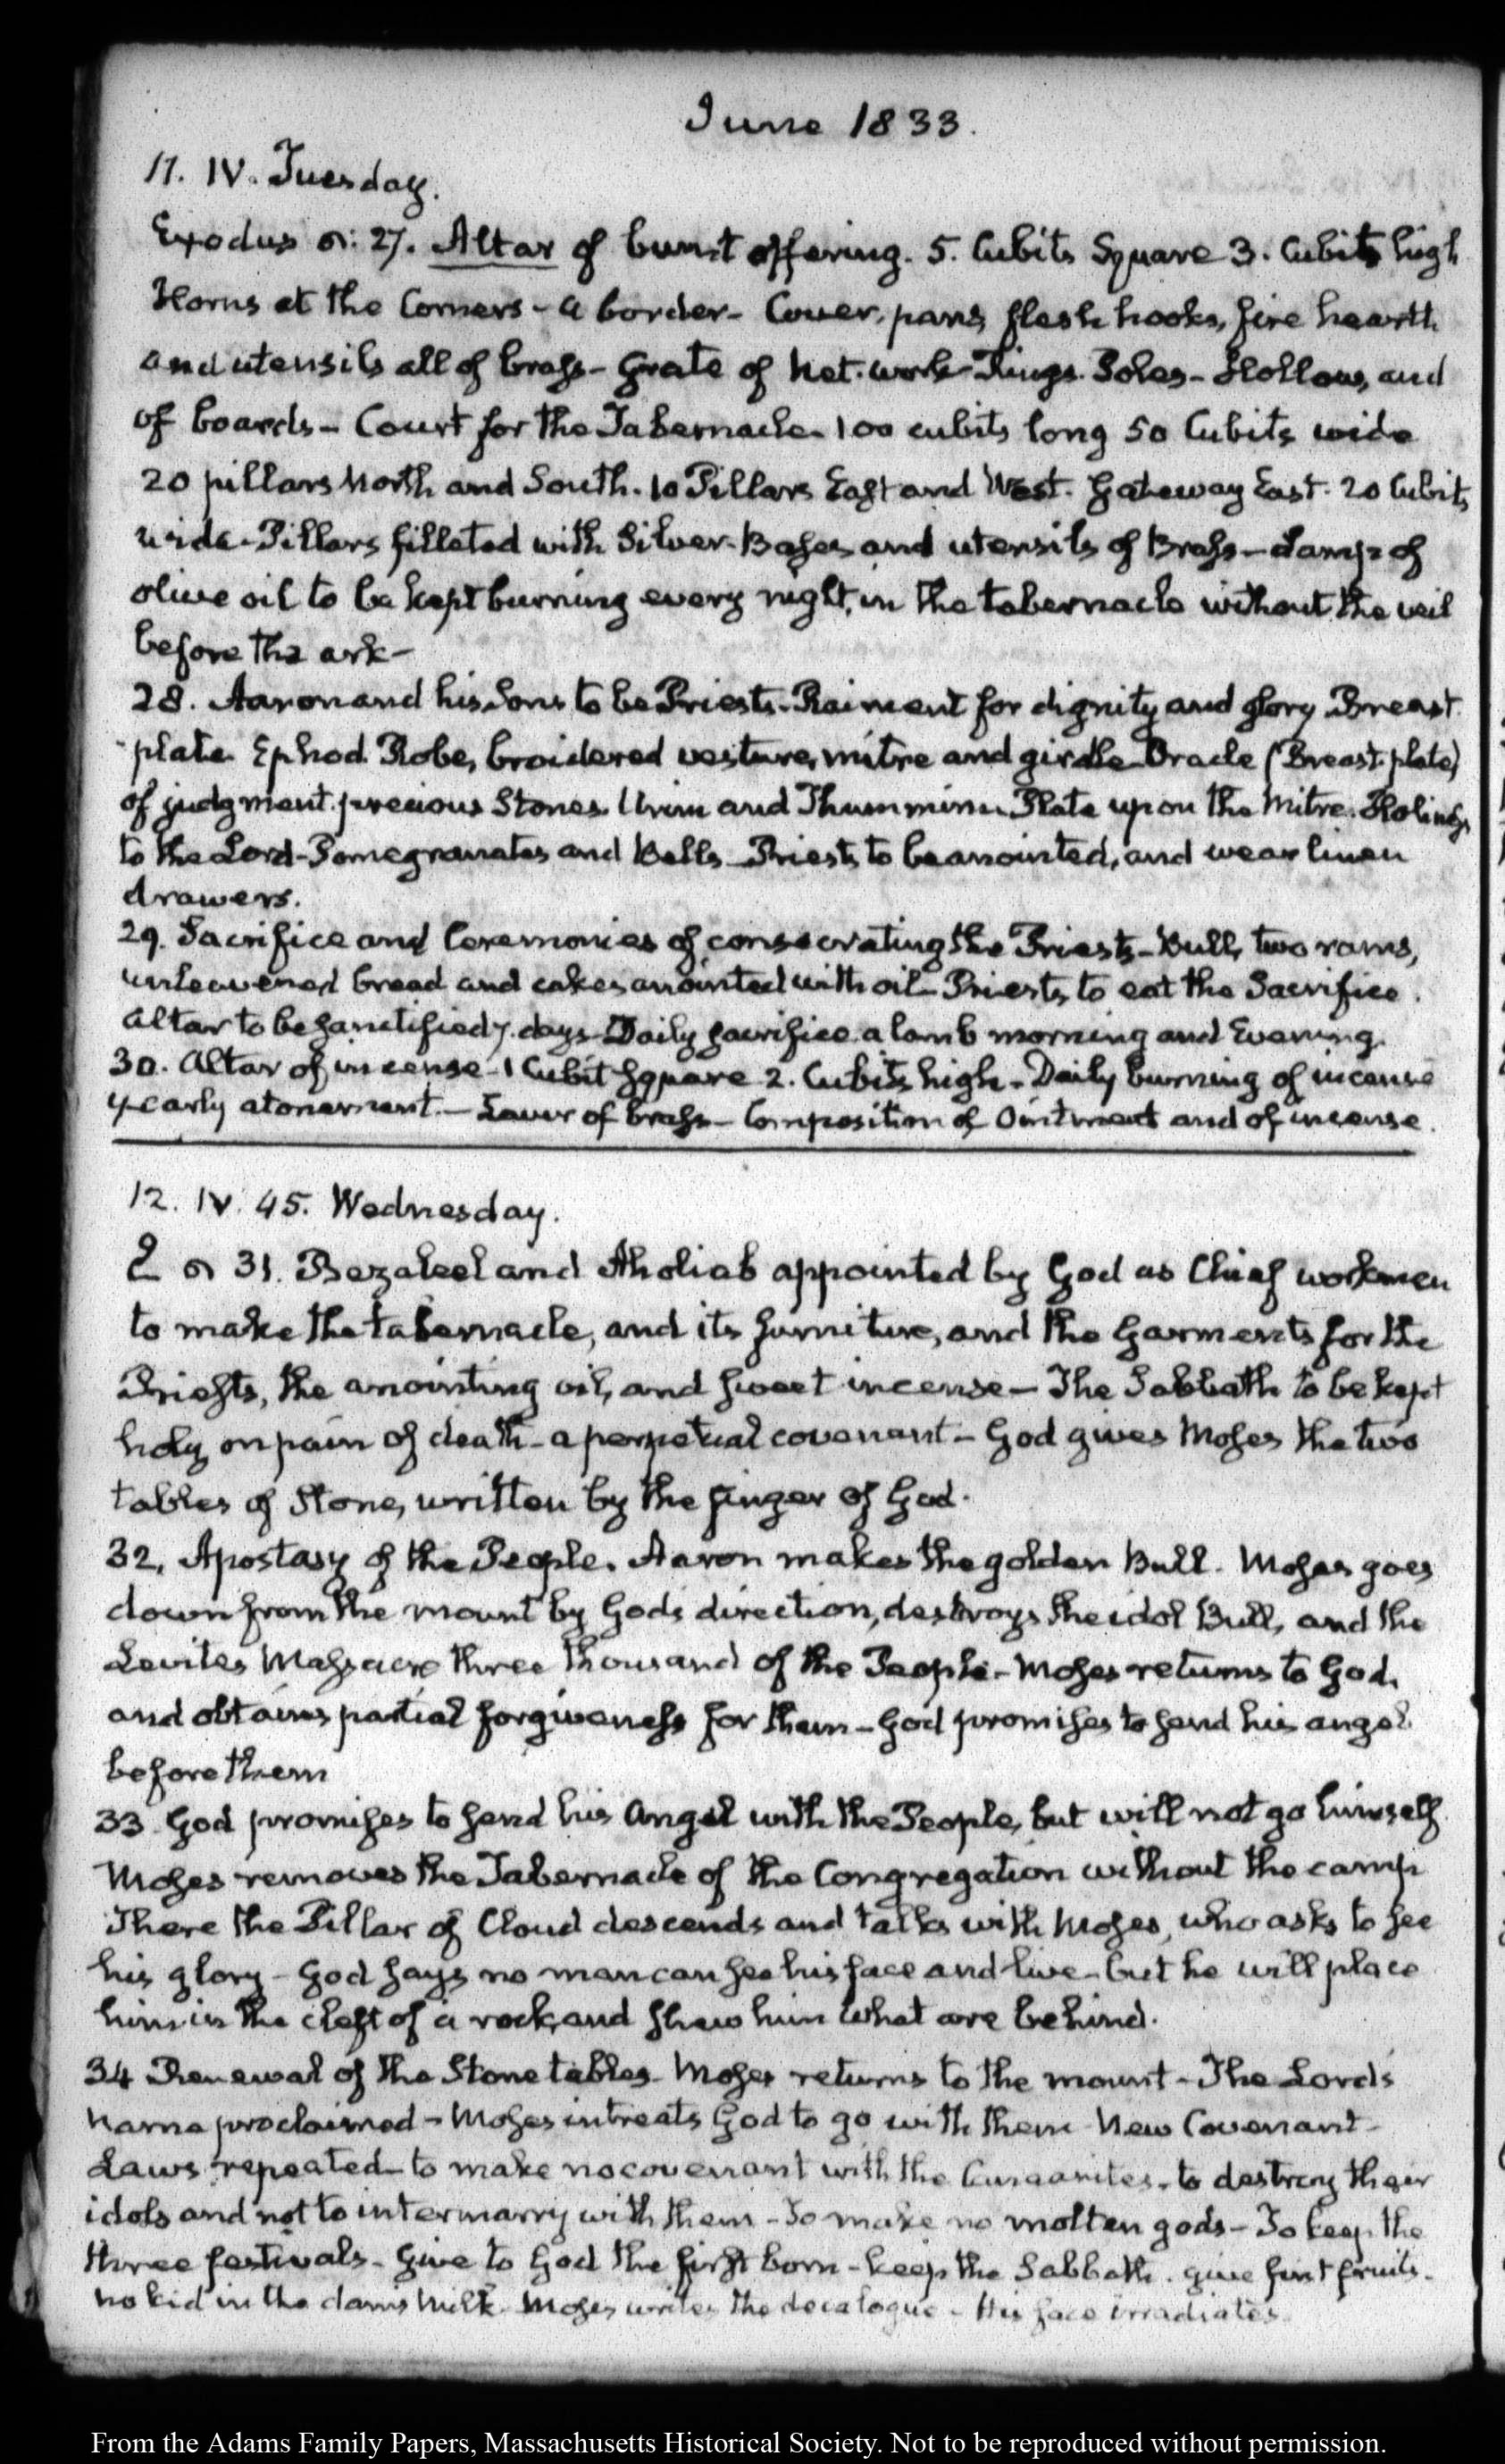 June 1833.
11. IV. Tuesday.
Exodus 27. Altar of burnt offering. 5. Cubits Square 3. Cubits high
Horns at the Corners - a border - Cover, pans, flesh hooks, fire hearth
and utensils all of brass - Grate of net-work Rings. Poles - Hollow, and
of boards - Court for the Tabernacle - 100 cubits long 50 Cubits wide
20 pillars North and South. 10 Pillars East and West. Gateway East. 20 Cubits
wide - Pillars filleted with Silver - Bases and utensils of Brass - Lamps of
olive oil to be kept burning every night, in the tabernacle without the veil
before the ark -
28. Aaron and his Sons to be Priests - Raiment for dignity and glory Breast
plate Ephod Robe, broidered vesture, mitre and girdle - Oracle (Breast plate)
of judgment. precious Stones. Urim and Thummim - Plate upon the Mitre. Holiness
to the Lord - Pomegranates and Bells - Priests to be anointed, and wear linen
drawers.
29. Sacrifice and Ceremonies of consecrating the Priests - Bull, two rams,
unleavened bread and cakes anointed with oil - Priests to eat the Sacrifice.
Altar to be sanctified 7. days - Daily sacrifice a lamb morning and Evening.
30. Altar of incense - 1 Cubit square 2. Cubits high - Daily burning of incense
yearly atonement. - Laver of brass - Composition of Ointment and of incense.
12. IV. 45. Wednesday.
31. Bezaleel and Aholiab appointed by God as Chief workmen
to make the tabernacle, and its furniture, and the Garments for the
Priests, the anointing oil, and sweet incense - The Sabbath to be kept
holy on pain of death - a perpetual covenant - God gives Moses the two
tables of Stone, written by the finger of God.
32, Apostasy of the People. Aaron makes the golden Bull. Moses goes
down from the mount by Gods direction, destroys the idol Bull, and the
Levites Massacre three thousand of the People - Moses returns to God,
and obtains partial forgiveness for them - God promises to send his angel
before them
33 God promises to send his Angel with the People, but will not go himself.
Moses removes the Tabernacle of the Congregation without the camp
There the Pillar of Cloud descends and talks with Moses, who asks to see
his glory - God says no man can see his face and live - but he will place
him in the cleft of a rock, and shew him what are behind.
34 Renewal of the Stone tables - Moses returns to the mount - The Lord's
name proclaimed - Moses intreats God to go with them - New Covenant -
Laws repeated - to make no covenant with the Canaanites, to destroy their
idols and not to intermarry with them - To make no molten gods - To keep the
three festivals - Give to God the first born - keep the Sabbath. give first fruits.
no kid in the dams milk. Moses writes the decalogue - His face irradiates.
From the Adams Family Papers, Massachusetts Historical Society. Not to be reproduced without permission.